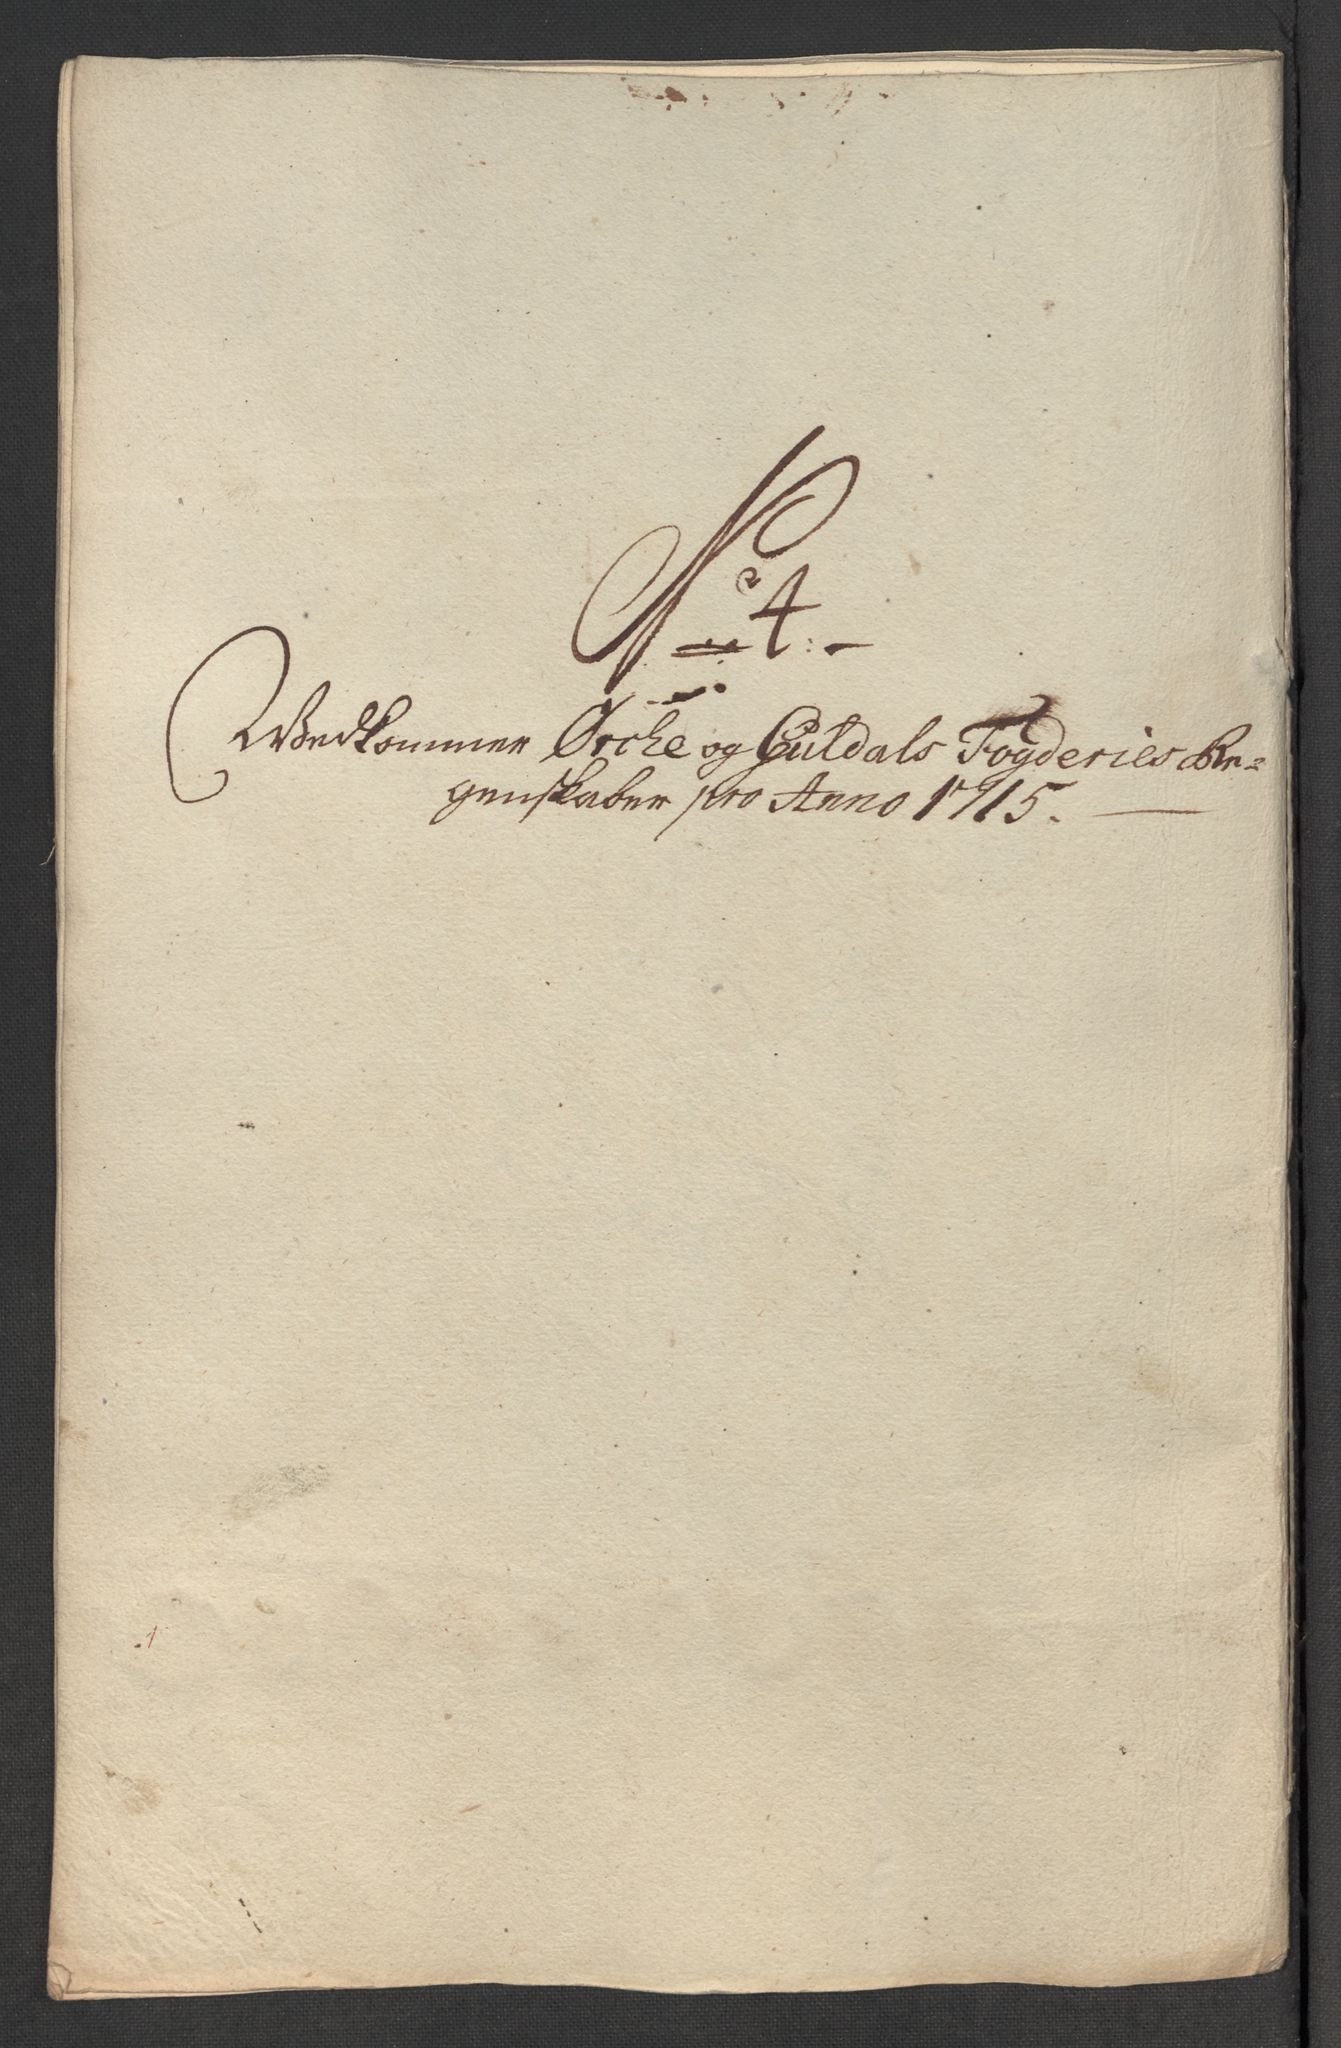 No 4:-
Wedkommer Ørche og Guldals Fogderies Re=
genskaber pro Anno 1715.